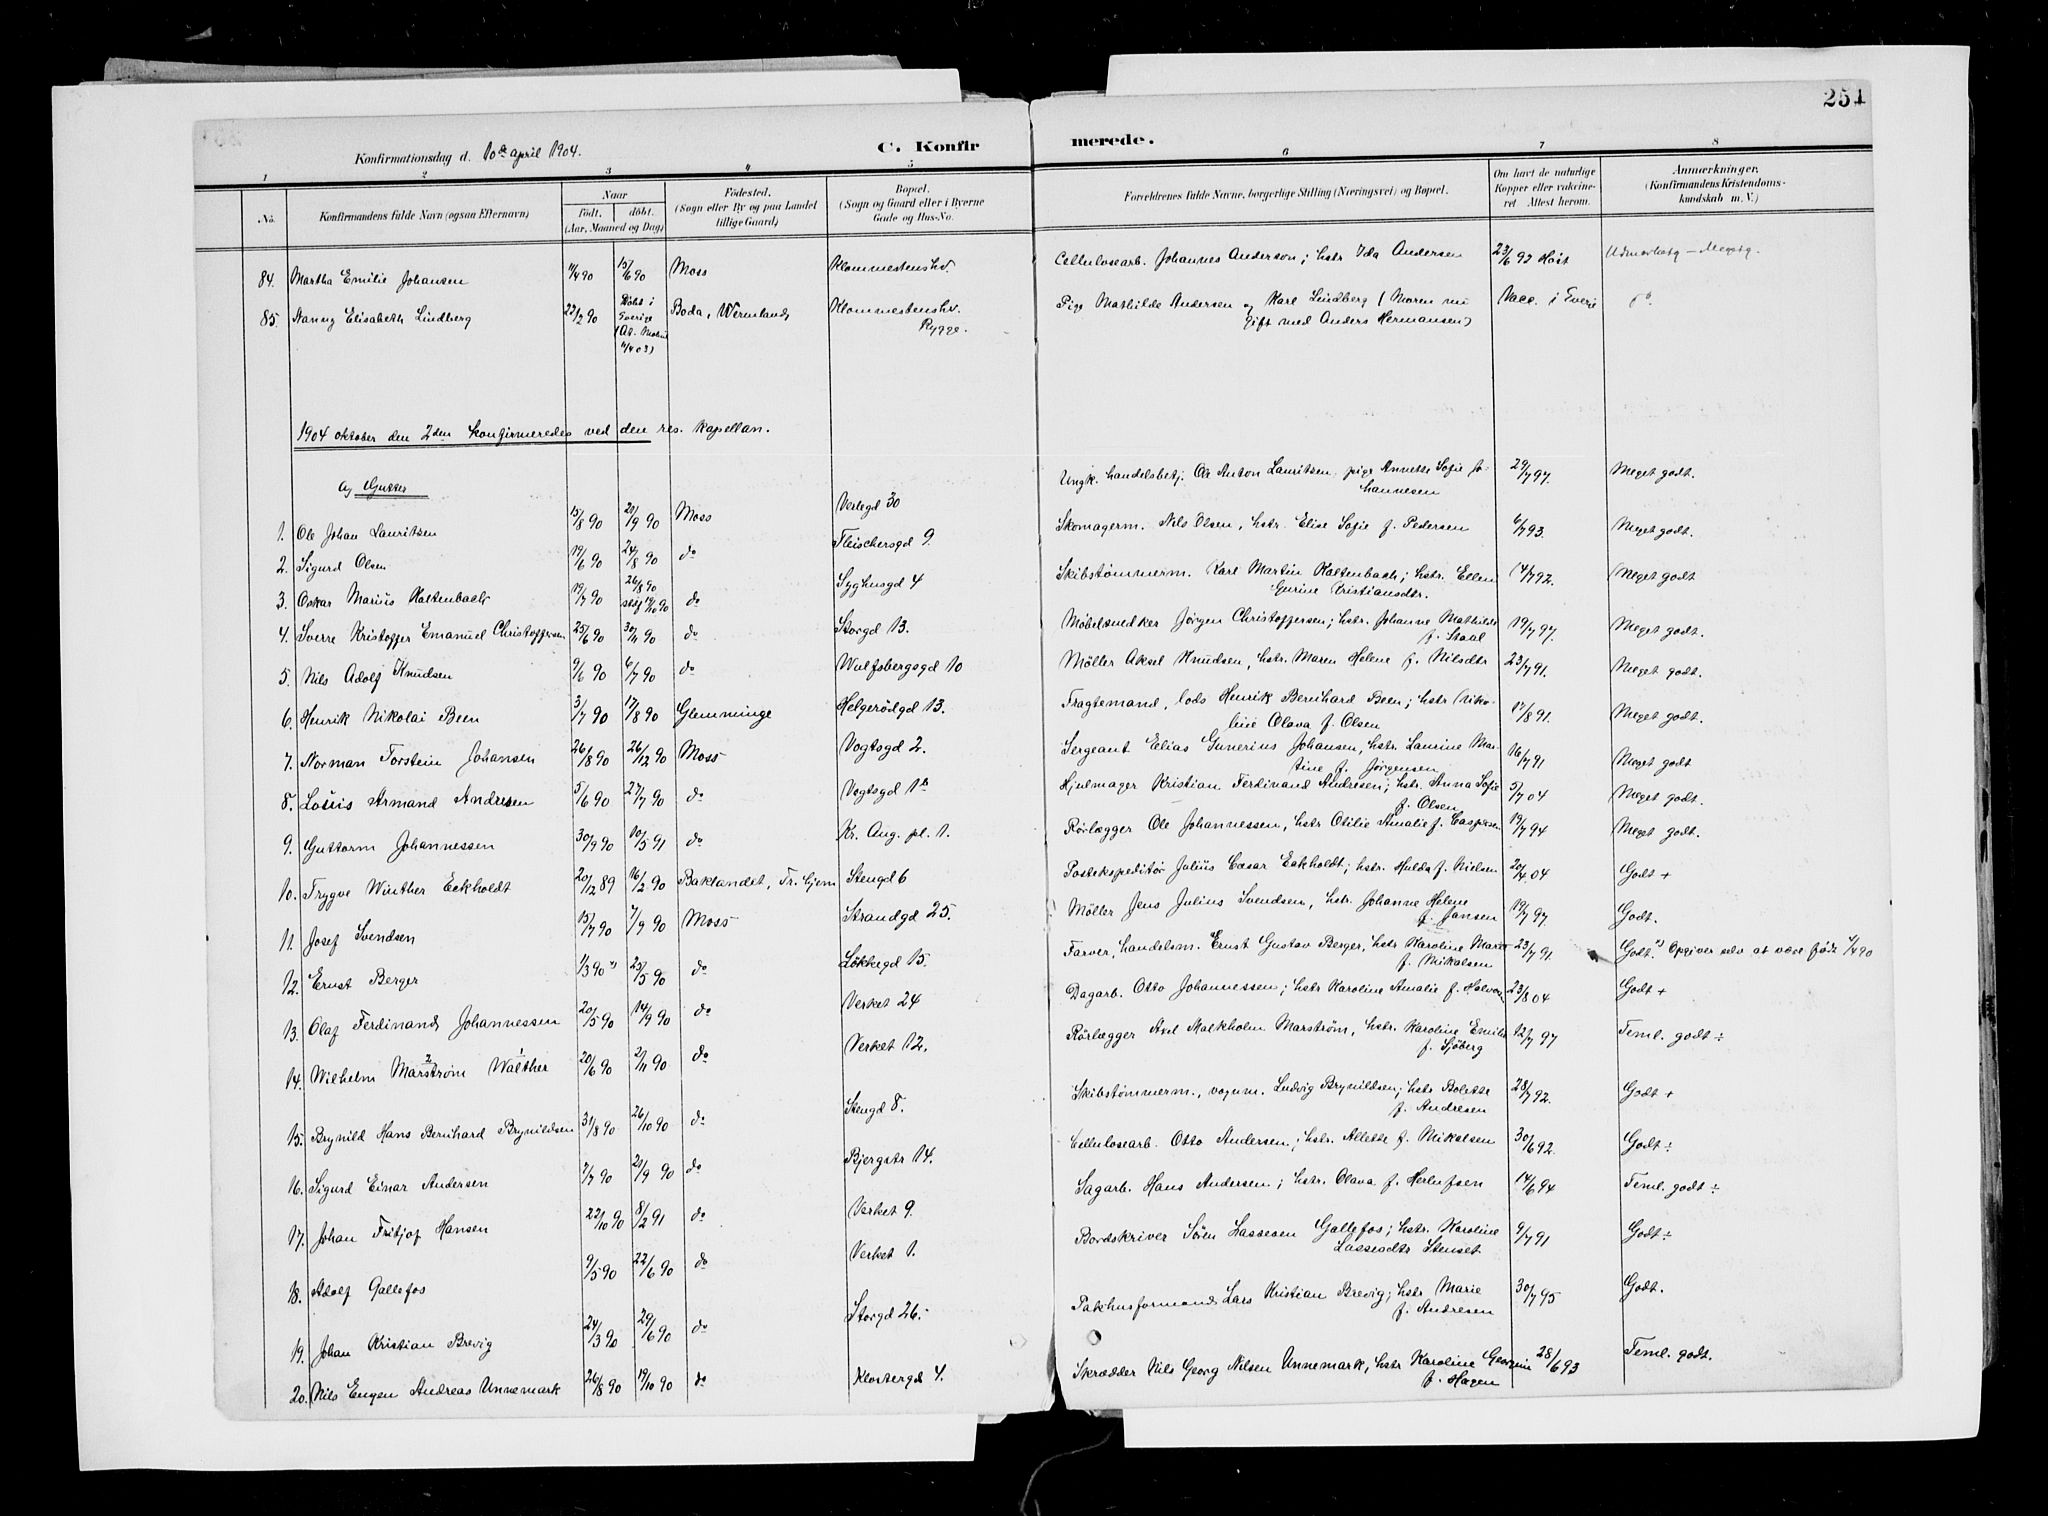 251
Konfirmationsdag d. 10de april 1904.
C. Konfirmerede.
1 2 3 4 5 6 7 8
No.
Konfirmandens fulde Navn (ogsaa Efternavn)
Naar
født. døbt.
(Aar, Maaned og Dag)
Fødested.
(Sogn eller By og paa Landet
tillige Gaard)
Bopæl.
(Sogn og Gaard eller i Byerne
Gade og Hus-No.
Forældrenes fulde Navne, borgerlige Stilling (Næringsvei) og Bopæl.
Om havt de naturlige
Kopper eller vakcine-
ret Attest herom.
Anmærkninger.
(Konfirmandens Kristendoms-
kundskab m. V.)
84. Martha Emilie Johansen 11/4 90 15/6 90 Moss Klommestenshv. Cellulosearb. Johannes Anderson; hstr Ida Andersen 23/6 92 Høst
85. Nanny Elisabeth Lindberg 22/2 90 Døbt i Boda, Wermland Klommestenshv. Pige Mathilde Andersen og Karl Lindberg (Moren nu Vacc. i Sveri do
Sverige Rygge. gift med Anders Hermansen)
11/4 03)
1904 oktober den 2den konfirmeredes ved den res. kapellan.
a) Gutter
1. Ole Johan Lauritsen 15/8 90 21/9 90 Moss Verlegd 30 Ungk. handelsbetj. Ole Anton Lauritsen, pige Annette Sofie Jo- 29/7 97. Meget godt.
hannesen
2. Sigurd Olsen 19/6 90 24/8 90 do Fleischersgd 9. Skomagerm. Nils Olsen, hstr. Elise Sofie f. Pedersen 6/7 93. Meget godt.
3. Oskar Marius Kaltenbach 19/7 90 26/8 90 do Syghusgd 4 Skibstømmerm. Karl Martin Kaltenbach; hstr. Ellen 14/7 92. Meget godt
stsf 19/10 90 Gurine Kristiansdtr.
4. Sverre Kristoffer Emanuel Christoffersen 25/6 90 30/11 90 do Storgd 13. Møbelsnedker Jørgen Christoffersen; hstr. Johanne Mathilde 19/7 97. Meget godt.
f. Staal
5. Nils Adolf Knudsen 9/6 90 6/7 90 do Wulfsbergsgd 10 Møller Aksel Knudsen, hstr. Maren Helene f. Nilsdtr 23/7 91. Meget godt.
6. Henrik Nikolai Been 3/7 90 17/8 90 Glemminge Helgerødgd 13. Fragtemand, lods Henrik Bernhard Been; hstr Niko- 17/8 91. Meget godt.
line Olava f. Olsen
7. Norman Torstein Johansen 26/8 90 26/12 90 Moss Vogtsgd 2. Sergeant Elias Gunerius Johansen, hstr. Laurine Mar- 16/7 91 Meget godt
tine f. Jørgensen
8. Louis Armand Andresen 5/6 90 27/7 90 do Vogtsgd 1B Hjulmager Kristian Ferdinand Andresen; hstr. Anna Sofie 5/7 04 Meget godt.
f. Olsen
9. Guttorm Johannessen 30/9 90 10/5 91 do Kr. Aug. pl. 1. Rørlægger Ole Johannessen, hstr Otilie Amalie f. Caspersen 19/7 94 Meget godt.
10. Trygve Winther Eckholdt 20/2 89 16/2 90 Baklandet, Tr.hjem Stengd 6 Postekspeditør Julius Cæsar Eckholdt; hstr. Hulda f. Nielsen 20/4 04 Godt +
11. Josef Svendsen 15/7 90 7/9 90 Moss Strandgd 25. Møller Jens Julius Svendsen, hstr. Johanne Helene 19/7 97. Godt.
f. Jansen
12. Ernst Berger 1/3 90 *) 25/5 90 do Løkkegd 15. Farver, handelsm. Ernst Gustav Berger, hstr Karoline Marie 23/7 91. Godt. *) Opgiver selv at være født 1/4 90
f. Mikalsen
13. Olaf Ferdinand Johannessen 20/5 90 14/9 90 do Verket 24 Dagarb. Otto Johannessen; hstr Karoline Amalie f. Halvors 23/8 04 Godt +
14. Wilhelm Marstrøm 2 Walther 1 20/6 90 2/11 90 do Verket 12. Rørlægger Axel Malkholm Marstrøm, hstr. Karoline Emilie 12/7 97 Teml. godt ÷
f. Sjøberg
15. Brynild Hans Bernhard Brynildsen 31/8 90 26/10 90 do Stengd 8. Skibstømmerm., vognm. Ludvig Brynildsen; hstr Bolette 28/7 92. Godt +
f. Andresen
16. Sigurd Einar Andersen 7/7 90 21/9 90 do Bjergstr 14. Cellulosearb. Otto Andersen; hstr. Allette f. Mikalsen 30/6 92. Godt ÷
17. Johan Fritjof Hansen 22/10 90 8/2 91 do Verket 9. Sagarb. Hans Andersen; hstr. Olava f. Herlufsen 14/6 94 Teml. godt ÷
18. Adolf Gallefos 9/5 90 22/6 90 do Verket 1. Bordskriver Søren Lassesen Gallefos; hstr. Karoline 9/7 91 Godt ÷
Lassesdtr Stenset
19. Johan Kristian Brevig 24/3 90 29/6 90 do Storgd 26. Pakhusformand Lars Kristian Brevig; hstr Marie 30/7 95 Godt.
f. Andresen
20. Nils Eugen Andreas Unnemark 26/8 90 19/10 90 do Klostergd 4. Skrædder Nils Georg Nilsen Unnemark, hstr Karoline Georgine 28/6 93 Teml. godt.
f. Hagen